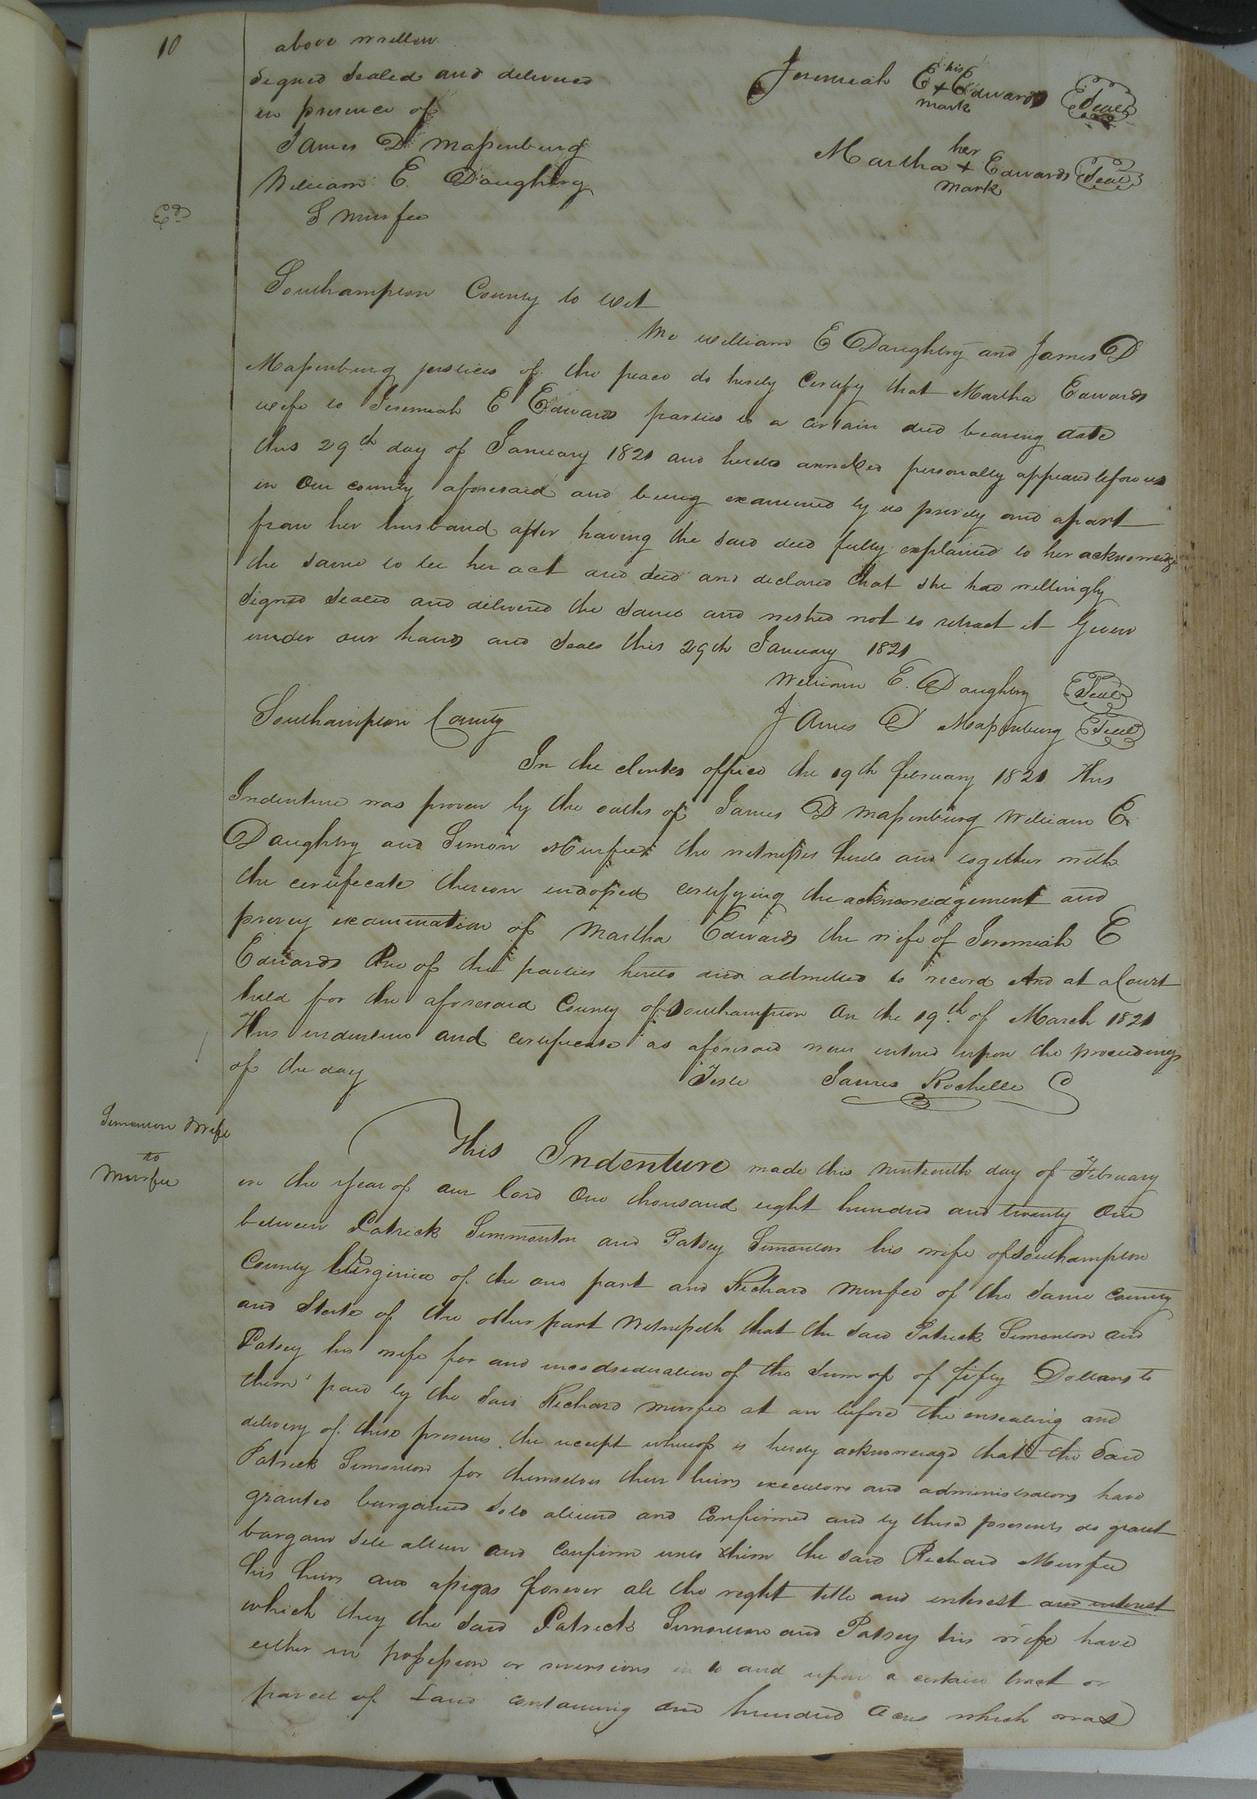 10
above written
Signed Sealed and delivered
in presence of
James D Massenburg
William E. Daughtry
S Murfee
Jeremiah E his + mark Edwards Seal
Martha her + mark Edwards Seal
Ed
Southampton County to wit
We William E Daughtry and James D
Massenburg justices of the peace do hereby Certify that Martha Edwards
wife to Jeremiah E Edwards parties to a certain deed bearing date
this 29th day of January 1821 and hereto annexed personally appeard before us
in Our county aforesaid and being examined by us privily and apart
from her husband after having the said deed fully explained to her acknowledg
the same to be her act and deed and declared that she had willingly
Signed Sealed and delivered the same and wished not to retract it Given
under our hands and Seals this 29th January 1821
William E. Daughtry Seal
James D Massenburg Seal
Southampton County
In the clerks office the 19th february 1821 This
Indenture was proven by the oaths of James D Massenburg William E
Daughtry and Simon Murfee the witnesses hereto and together with
the certificate thereon indorsed certifying the acknowledgement and
privey examination of Martha Edwards the wife of Jeremiah E
Edwards One of the parties hereto and admitted to record And at a Court
held for the aforesaid County of Southampton On the 19th of March 1821
This indenture and certificate as aforesaid were entered upon the proceedings
of the day
Teste James Rochelle C
Simonton & Wife
to
Murfee
This Indenture made this ninteenth day of February
in the Year of our lord One thousand eight hundred and twenty One
between Patrick Simmonton and Patsey Simonton his wife of Southampton
County Virginia of the one part and Richard Murfee of the same county
and State of the other part Witnesseth that the said Patrick Simonton and
Patsey his wife for and inconsideration of the Sum of of fifty Dollars to
them paid by the said Richard Murfee at or before the ensealing and
delivery of these presents the receipt whereof is hereby acknowledgd that the Said
Patrick Simonton for themselves their heirs executors and administrators have
granted bargained Sold aliend and Confirmed and by these presents do grant
bargain Sell alien and Confirm unto him the said Richard Murfee
his heirs and assigns forever all the right title and interest and interest
which they the said Patrick Simonton and Patsey his wife have
either in possession or reversions in to and upon a certain tract or
parcel of Land containing one hundred Acres which was